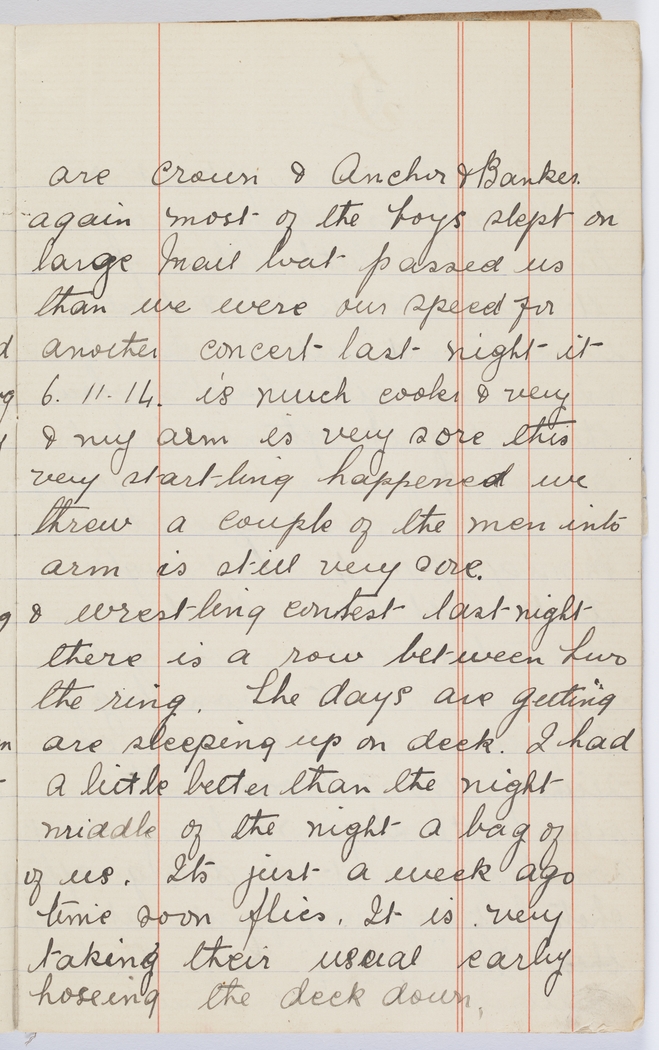 are Crown & Anchor & Banker.
again most of the boys slept on
large Mail boat passed us
than we were our speed for
another concert last night it
6.11.14. is much cooler & very
& my arm is very sore this
very startling happened we
threw a couple of the men into
arm is still very sore.
& wrestling contest last night
there is a row between two
the ring. The days are getting
are sleeping up on deck. I had
a little better than the night
middle of the night a bag of
of us. Its just a week ago
time soon flies. It is very
taking their usual early
hoseing the deck down,